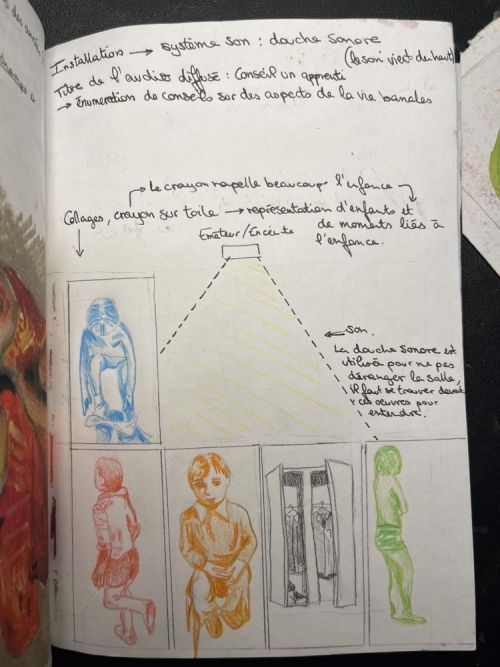 Installation → système son : douche sonore
(le son vient du haut)
Titre de l'audio diffusé : Conseil un apprenti
→ énumération de conseils sur des aspects de la vie banales
→ Le crayon rappelle beaucoup l'enfance
Collages, crayon sur toile → représentation d'enfants et
de moments liés à
l'enfance.
Emeteur/Enceinte
← son.
La douche sonore est
utilisée pour ne pas
déranger la salle,
il faut se trouver devant
ces oeuvres pour
entendre.